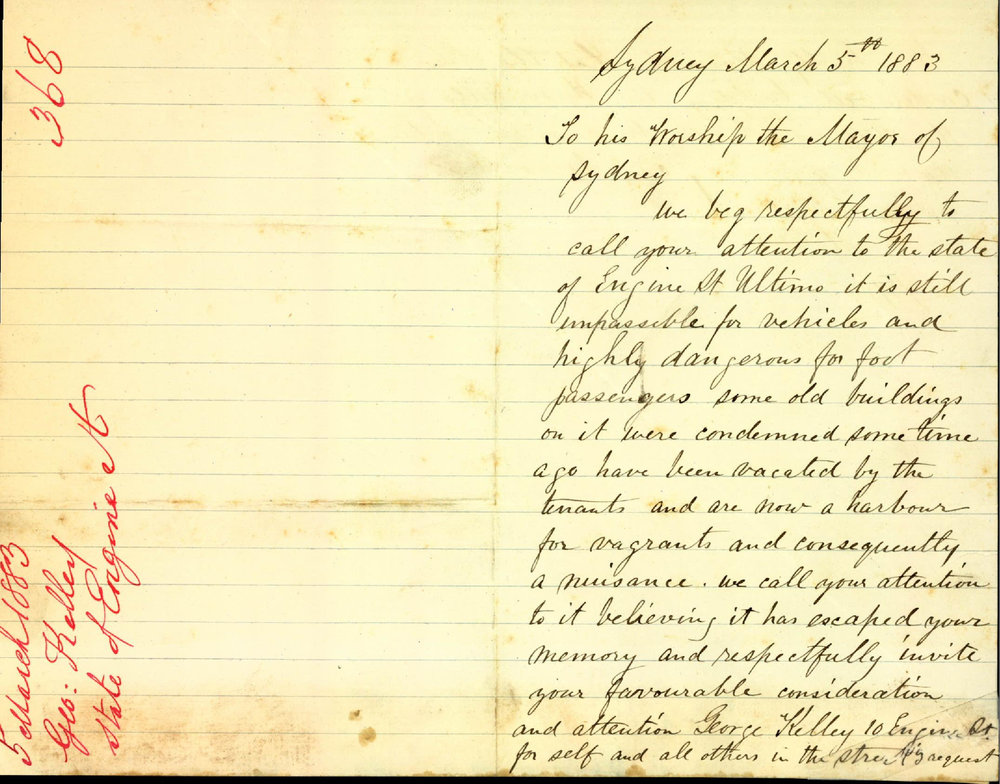 368
5 March 1883
Geo: Kelley
State of Engine St
Sydney March 5th 1883
To his Worship the Mayor of
Sydney
we beg respectfully to
call your attention to the state
of Engine St Ultimo it is still
impassible for vehicles and
highly dangerous for foot
passengers some old buildings
on it were condemned some time
ago have been vacated by the
tenants and are now a harbour
for vagrants and consequently
a nuisance. we call your attention
to it believing it has escaped your
memory and respectfully invite
your favourable consideration
and attention George Kelley 10 Engine St.
for self and all others in the street request